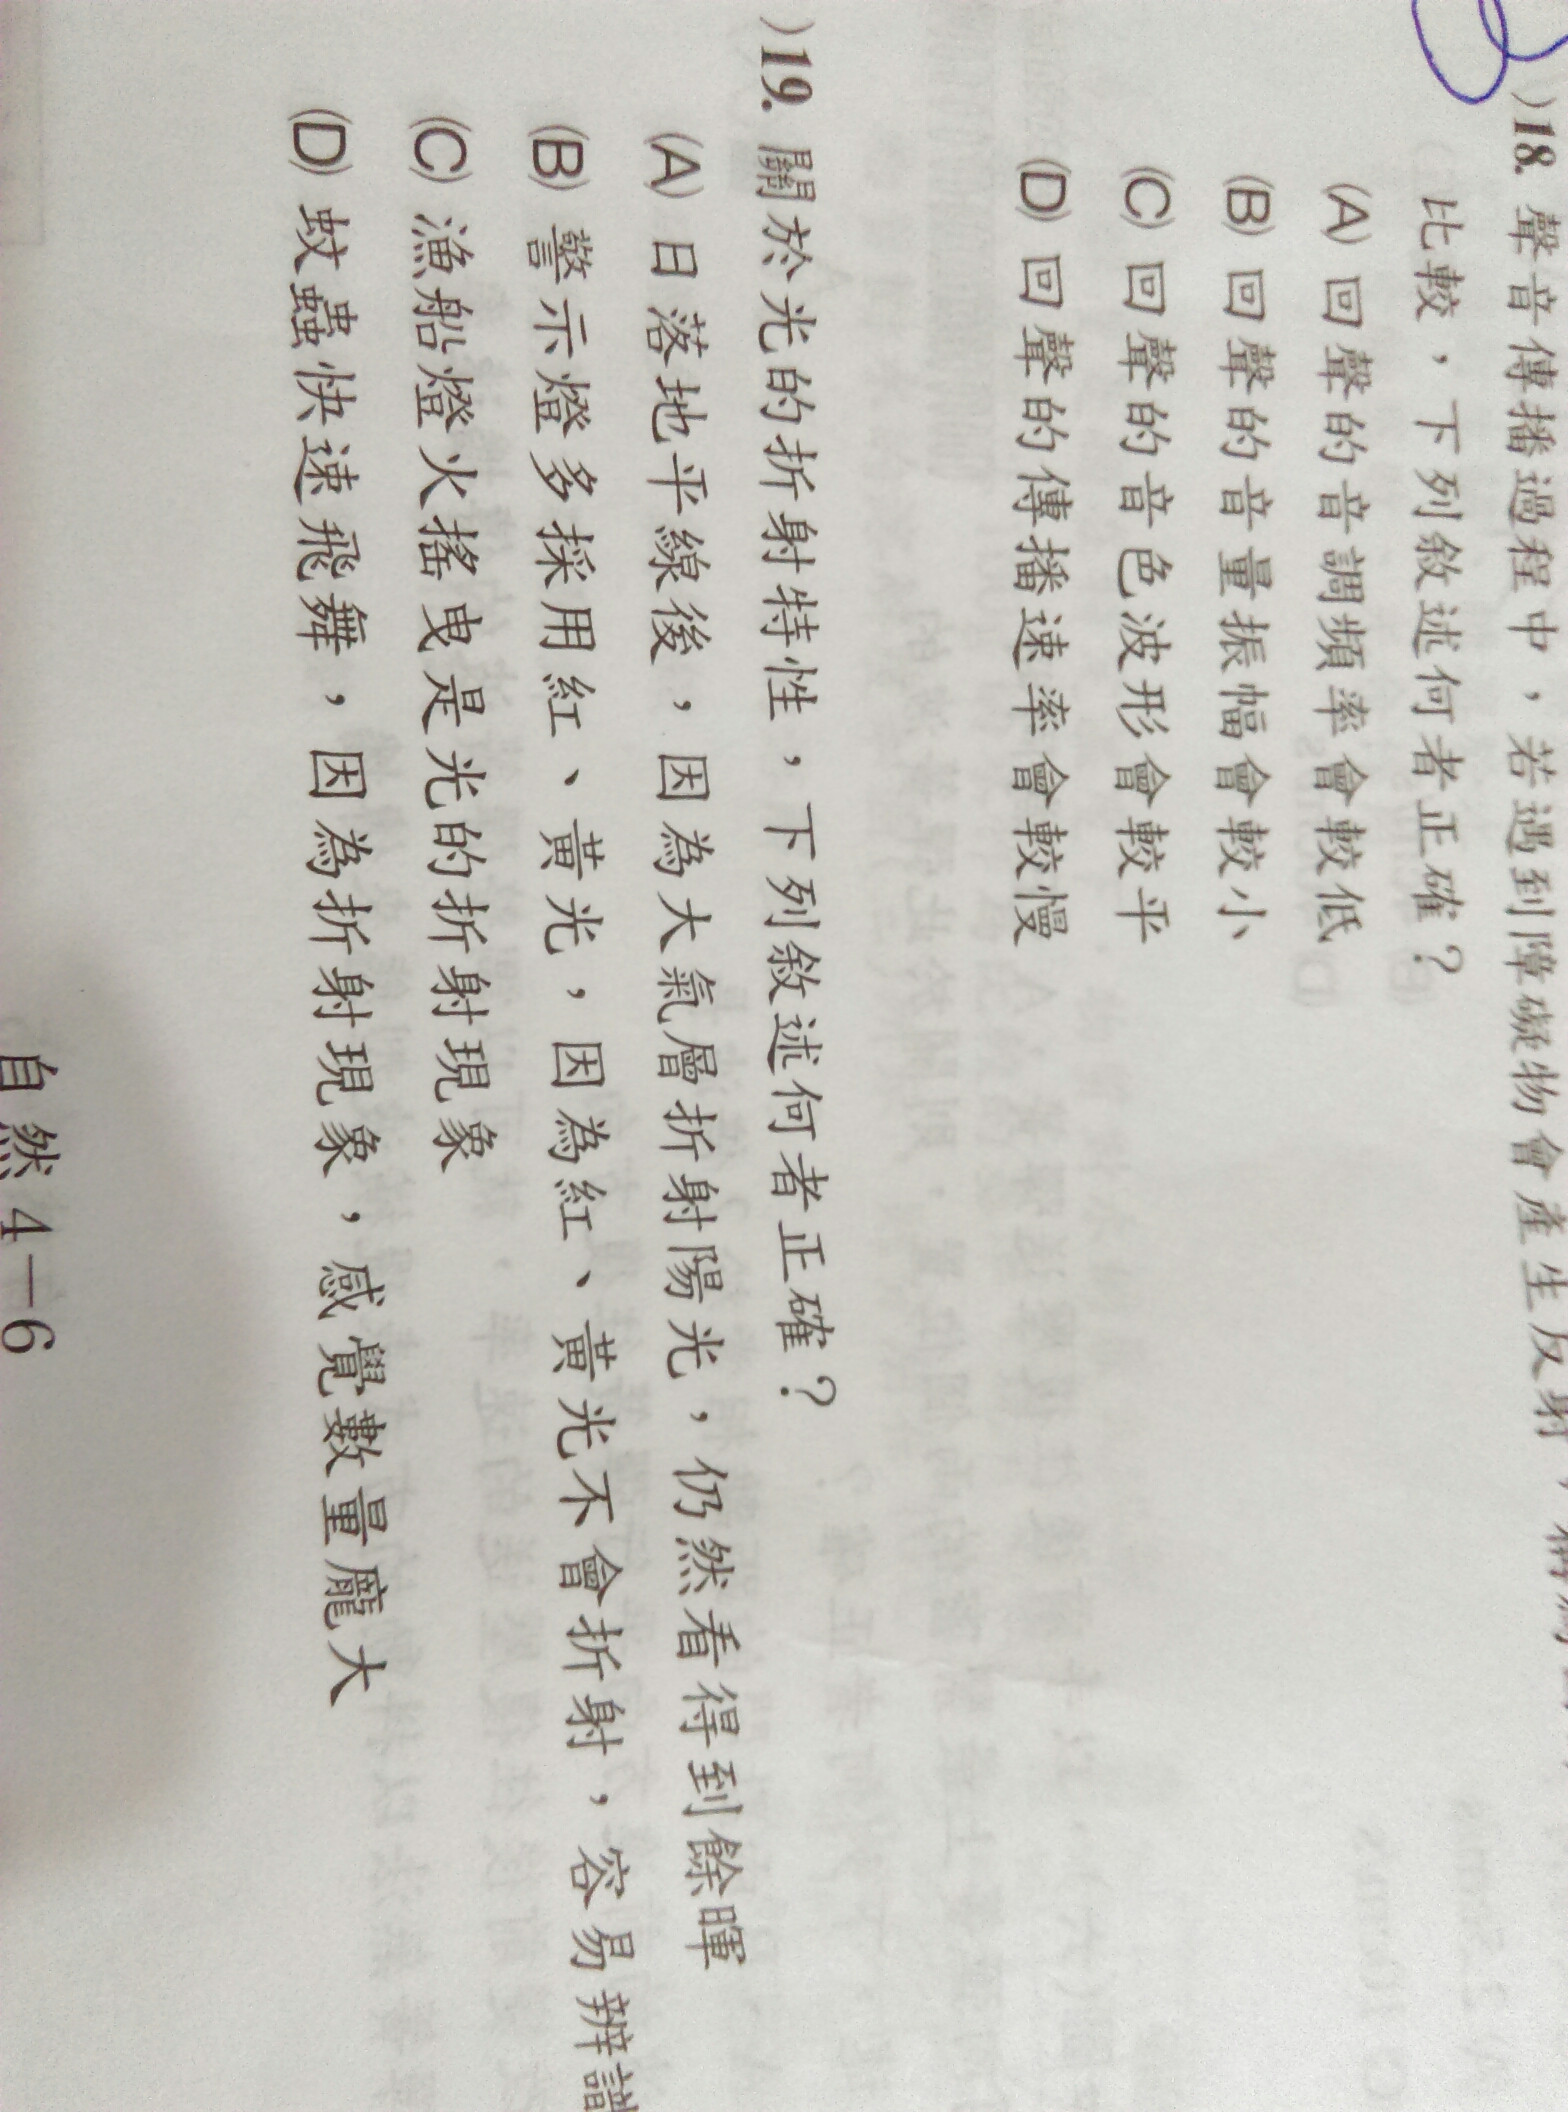 )18. 聲音傳播過程中，若遇到障礙物會產生反射，稱為
比較，下列敘述何者正確？
(A) 回聲的音調頻率會較低
(B) 回聲的音量振幅會較小
(C) 回聲的音色波形會較平
(D) 回聲的傳播速率會較慢
)19. 關於光的折射特性，下列敘述何者正確？
(A) 日落地平線後，因為大氣層折射陽光，仍然看得到餘暉
(B) 警示燈多採用紅、黃光，因為紅、黃光不會折射，容易辨識
(C) 漁船燈火搖曳是光的折射現象
(D) 蚊蟲快速飛舞，因為折射現象，感覺數量龐大
自然4－6